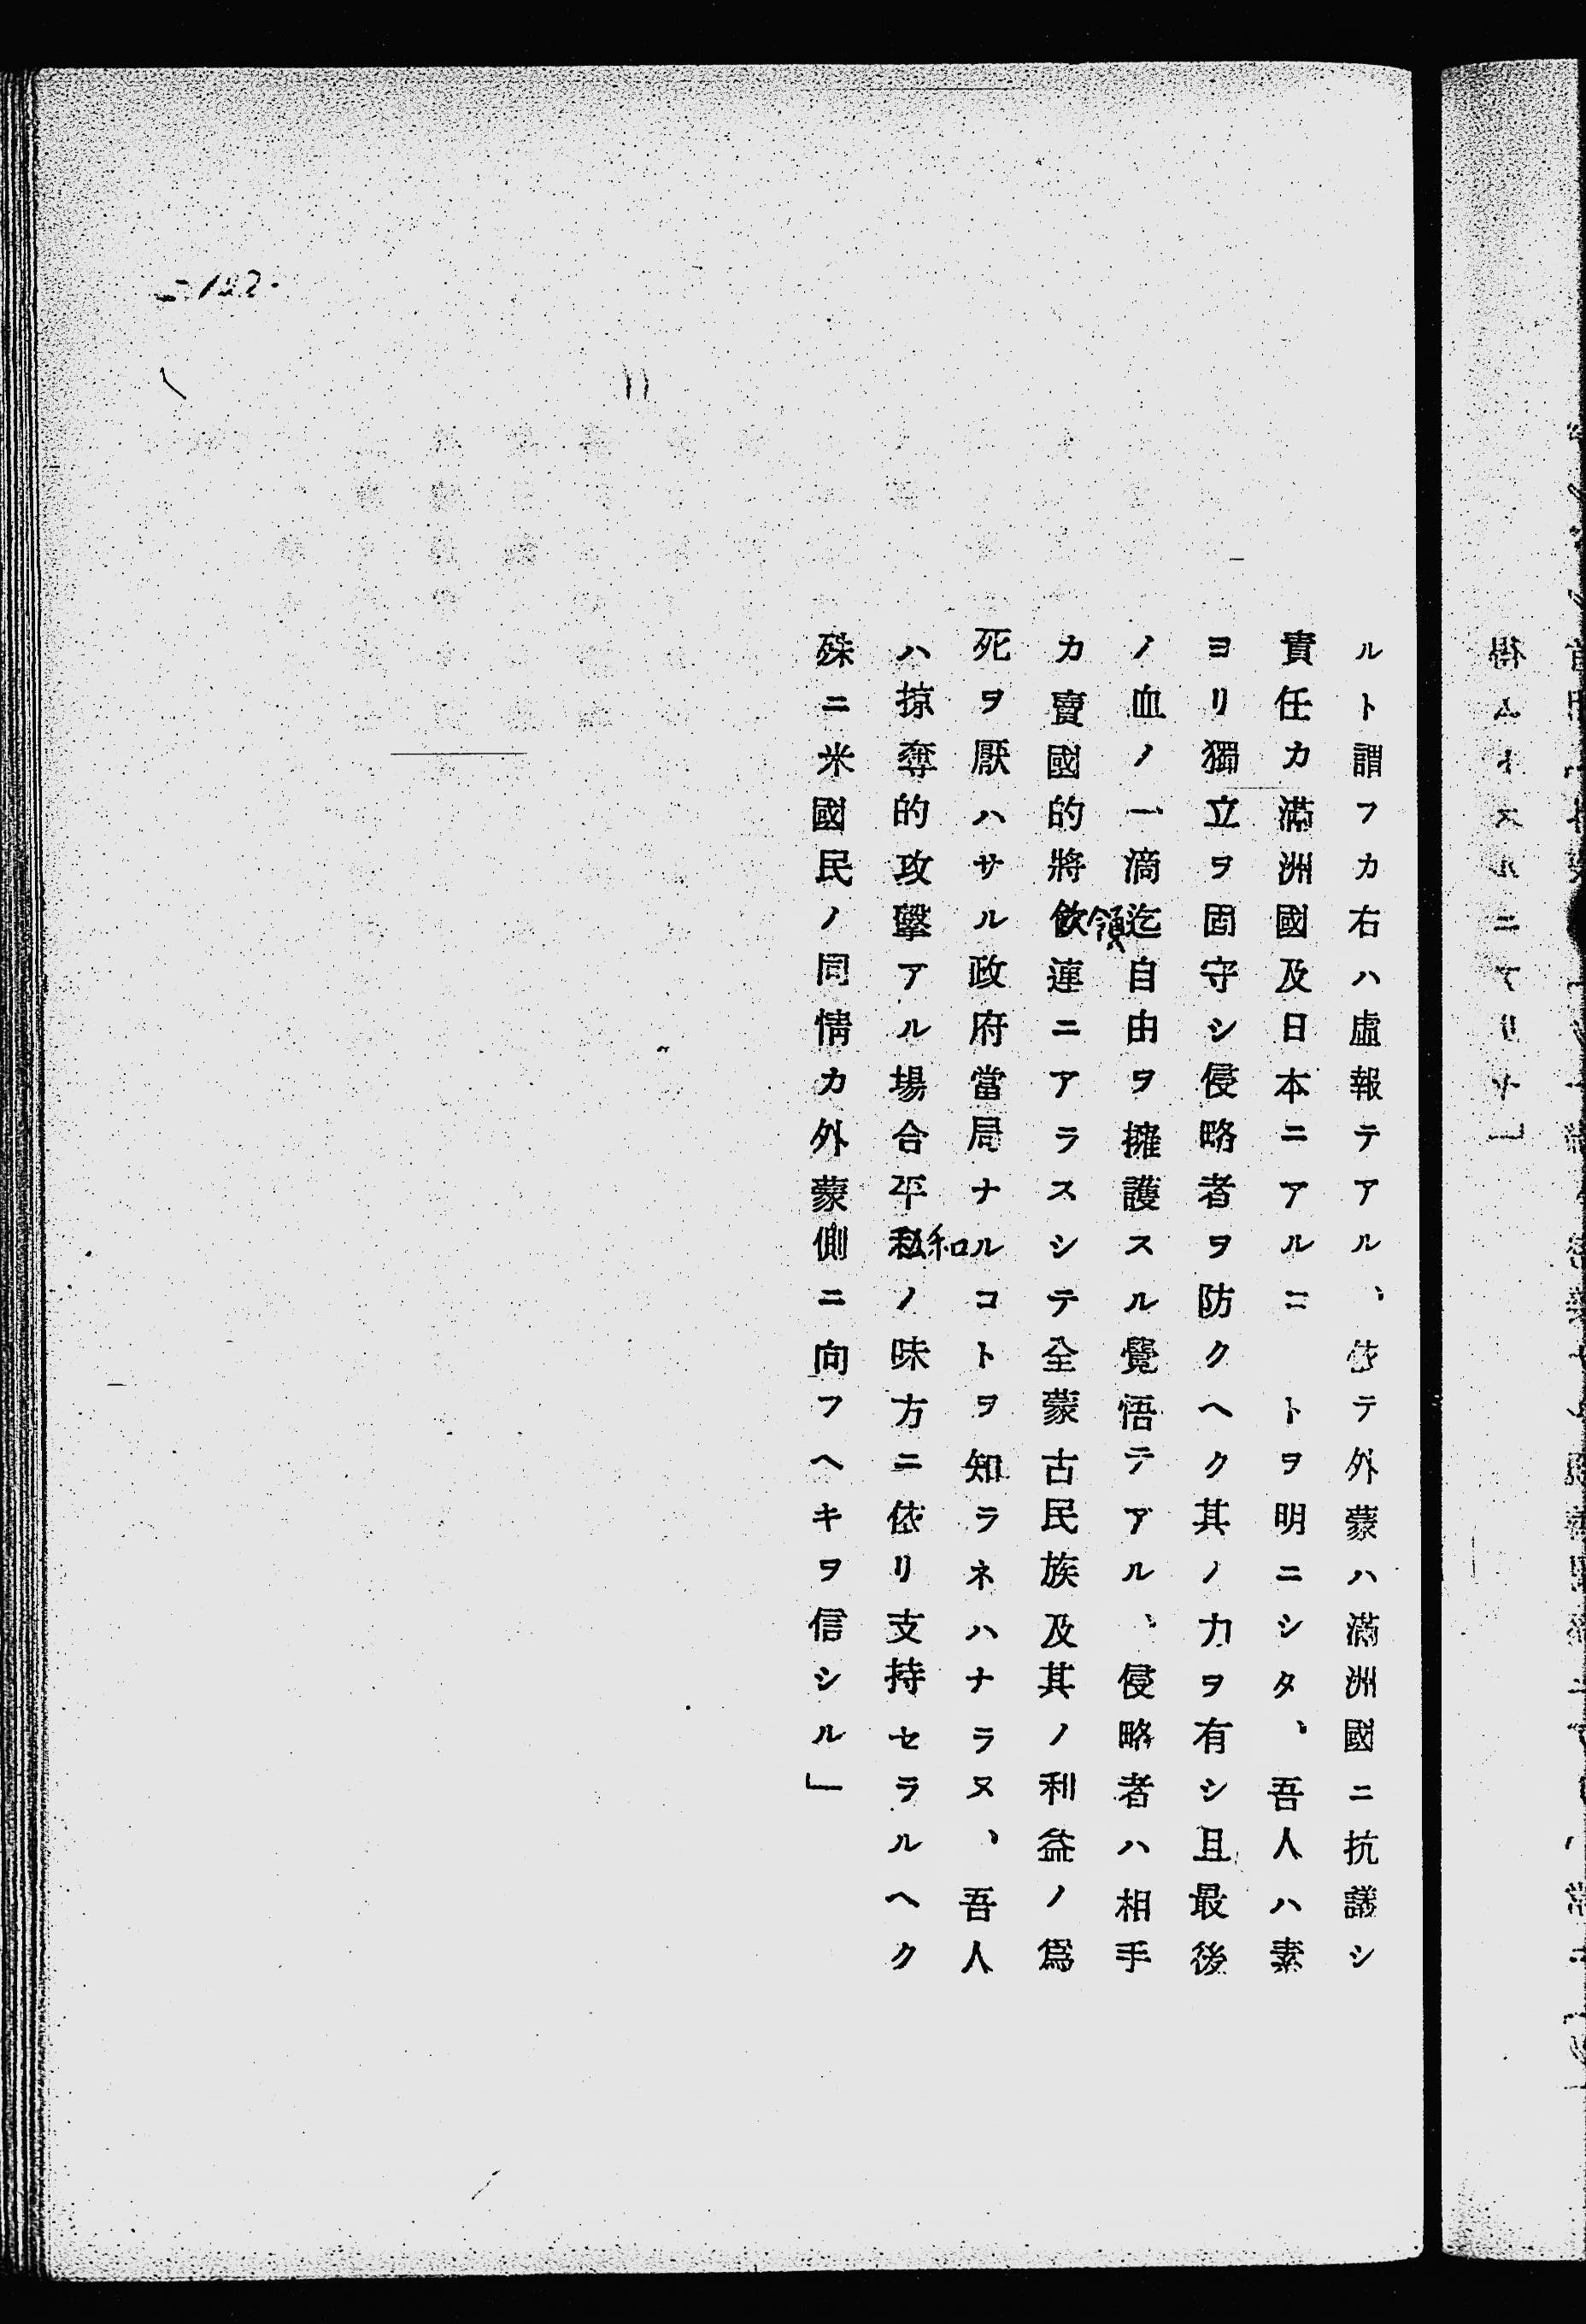 ルト謂フカ右ハ虛報テアル、依テ外蒙ハ滿洲國ニ抗議シ
責任カ滿洲國及日本ニアルコトヲ明ニシタ、吾人ハ素
ヨリ獨立ヲ固守シ侵略者ヲ防クヘク其ノ力ヲ有シ且最後
ノ血ノ一滴迄自由ヲ擁護スル覺悟テアル、侵略者ハ相手
カ賣國的將領連ニアラスシテ全蒙古民族及其ノ利益ノ爲
死ヲ厭ハサル政府當局ナルコトヲ知ラネハナラヌ、吾人
ハ掠奪的攻擊アル場合平和ノ味方ニ依リ支持セラルヘク
殊ニ米國民ノ同情カ外蒙側ニ向フヘキヲ信シル」